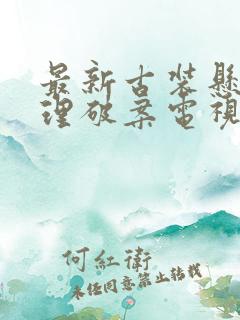 最新古装懸
理破案電視
何紅衛
未经同意禁止转载